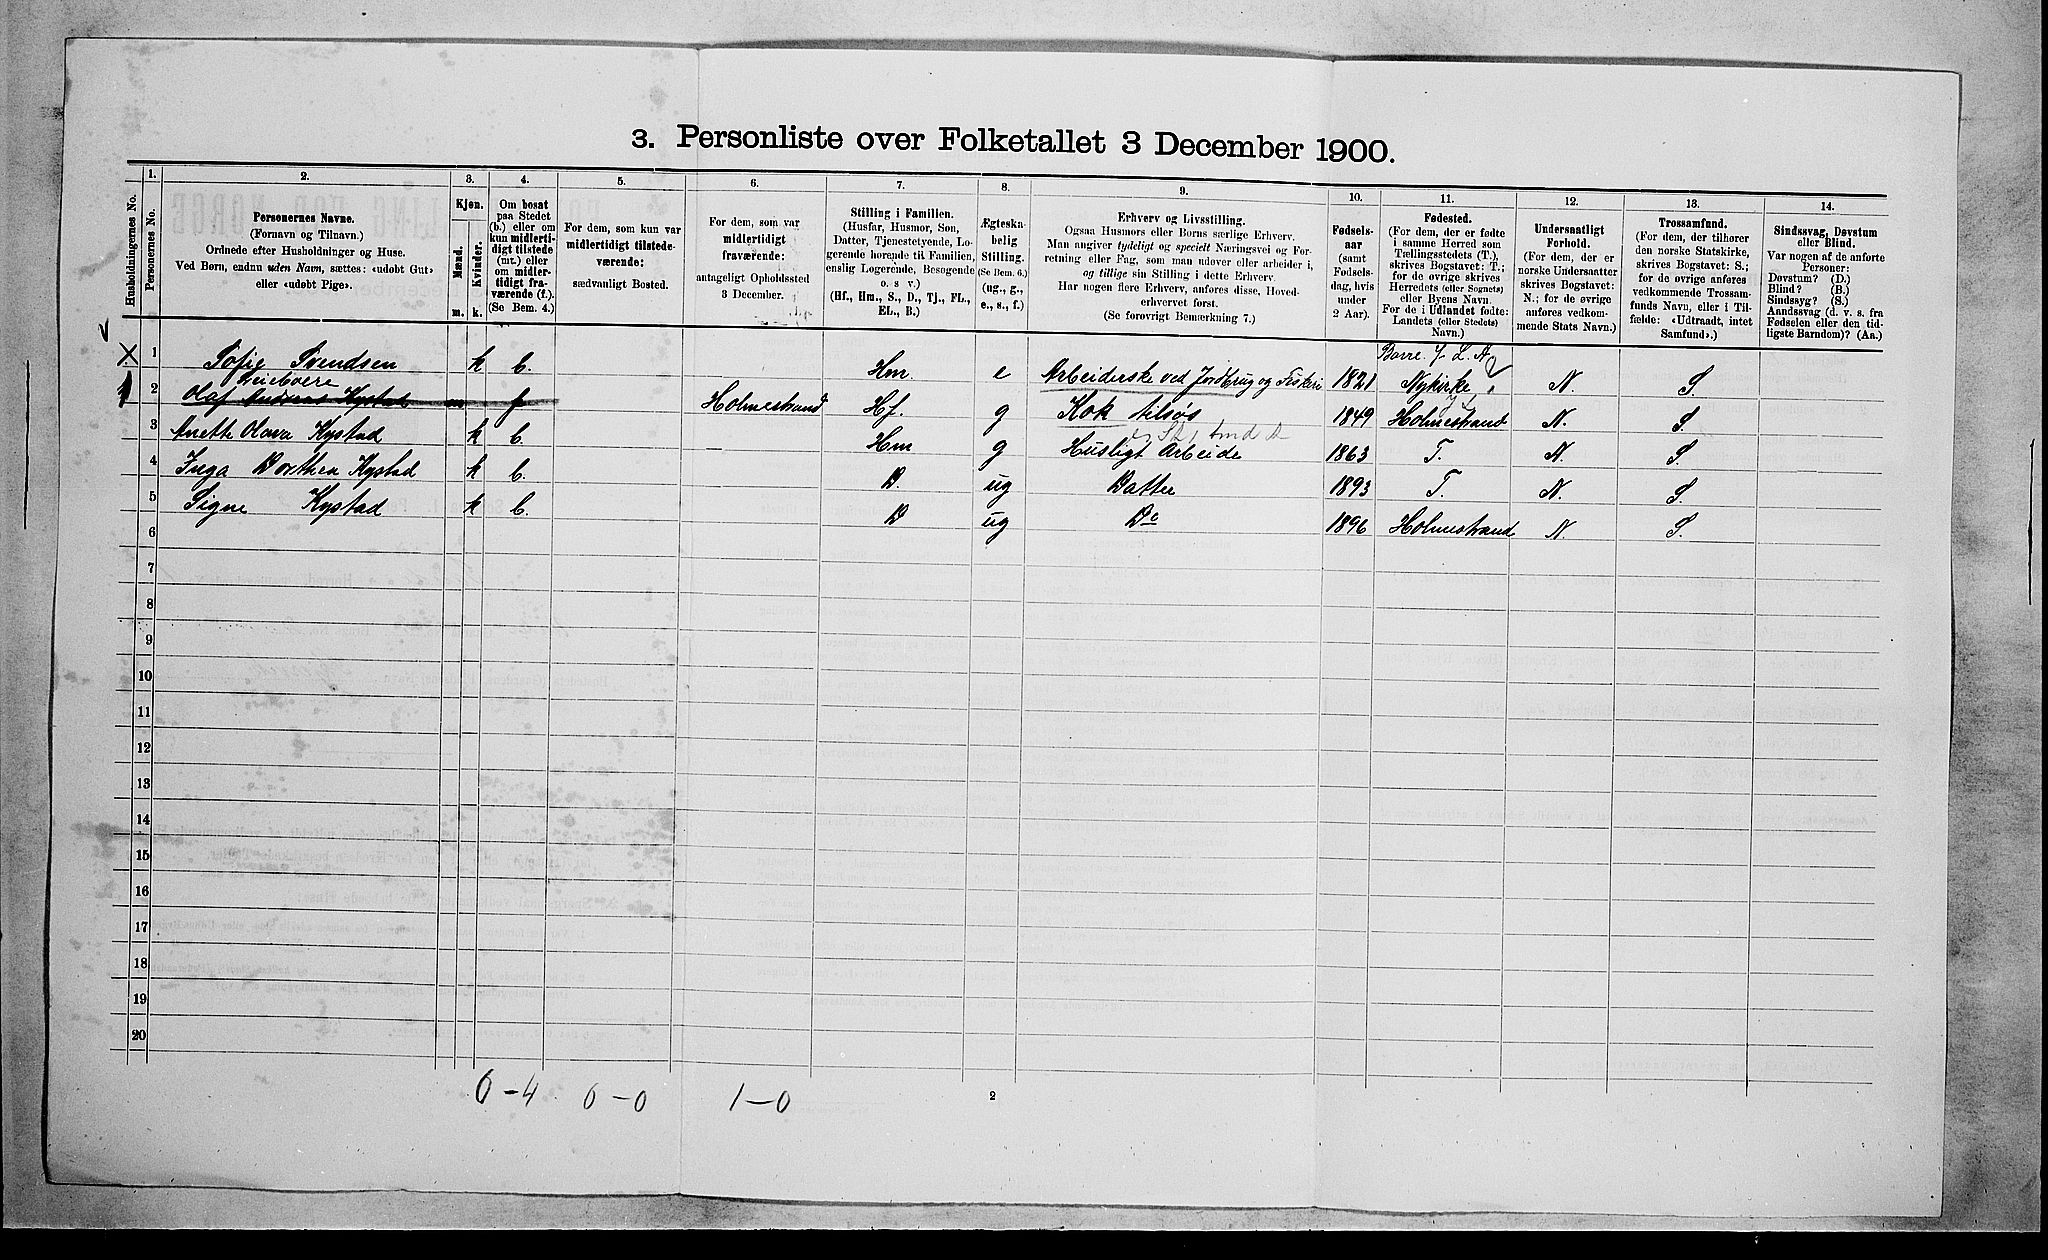 3. Personliste over Folketallet 3 December 1900.
Husholdningernes No.
1.
Personernes No.
2.
Personernes Navne.
(Fornavn og Tilnavn.)
Ordnede efter Husholdninger og Huse.
Ved Børn, endnu uden Navn, sættes: «udøbt Gut»
eller «udøbt Pige».
3.
Kjøn.
Mænd.
Kvinder.
m.
k.
4.
Om bosat
paa Stedet
(b.) eller om
kun midlerti-
digt tilstede
(mt.) eller
om midler-
tidigt fra-
værende (f.).
(Se Bem. 4.)
5.
For dem, som kun var
midlertidigt tilstede-
værende:
sædvanligt Bosted.
6.
For dem, som var
midlertidigt
fraværende:
antageligt Opholdssted
3 December.
7.
Stilling i Familien.
(Husfar, Husmor, Søn,
Datter, Tjenestetyende, Lo-
gerende hørende til Familien,
enslig Logerende, Besøgende
o. s v.)
(Hf., Hm., S., D., Tj., FL.,
EL., B.)
8.
Ægteska-
belig
Stilling.
(Se Bem. 6.)
(ug., g.,
e., s., f.)
9.
Erhverv og Livsstilling.
Ogsaa Husmors eller Børns særlige Erhverv.
Man angiver tydeligt og specielt Næringsvei og For-
retning eller Fag, som man udøver eller arbeider i,
og tillige sin Stilling i dette Erhverv.
Har nogen flere Erhverv, anføres disse, Hoved-
erhvervet først.
(Se forøvrigt Bemærkning 7.)
10.
Fødsels-
aar
(samt
Fødsels-
dag, hvis
under
2 Aar).
11.
Fødested.
(For dem, der er fødte
i samme Herred som
Tællingsstedets (T.),
skrives Bogstavet: T.;
for de øvrige skrives
Herredets (eller Sognets)
eller Byens Navn.
For de i Udlandet fødte:
Landets (eller Stedets)
Navn.)
12.
Undersaatligt
Forhold.
(For dem, der er
norske Undersaatter
skrives Bogstavet:
N.; for de øvrige
anføres vedkom-
mende Stats Navn.)
13.
Trossamfund.
(For dem, der tilhører
den norske Statskirke,
skrives Bogstavet: S.;
for de øvrige anføres
vedkommende Trossam-
funds Navn, eller i Til-
fælde: «Udtraadt, intet
Samfund».)
14.
Sindssvag, Døvstum
eller Blind.
Var nogen af de anførte
Personer:
Døvstum? (D.)
Blind? (B.)
Sindssyg? (S.)
Aandssvag (d. v. s. fra
Fødselen eller den tid-
ligste Barndom)? (Aa.)
X 1 Sofie Svendsen k b. Hm. e Arbeiderske ved Jordbrug og Fiskeri 1821 Borre Nykirke N. S.
Leieboere
1 2 Olaf Andreas Kystad m f Holmestrand Hf. g Kok tilsøs 1849 Holmestrand N. S.
3 Anette Olava Kystad k b. Hm g Husligt Arbeide 1863 T. N. S.
4 Inga Dorthea Kystad k b. D. ug Datter 1893 T. N. S.
5 Signe Kystad k b. D ug Do 1896 Holmestrand N. S.
6
7
8
9
10
11
12
13
14
15
16
17
18
19
20
0-4 0-0 1-0
2